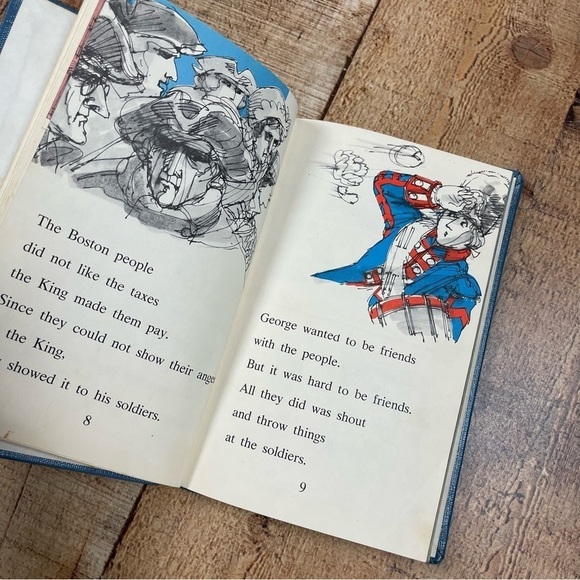 The Boston people
did not like the taxes
the King made them pay.
Since they could not show their
the King,
showed it to his soldiers.
8
George wanted to be friends
with the people.
But it was hard to be friends.
All they did was shout
and throw things
at the soldiers.
9